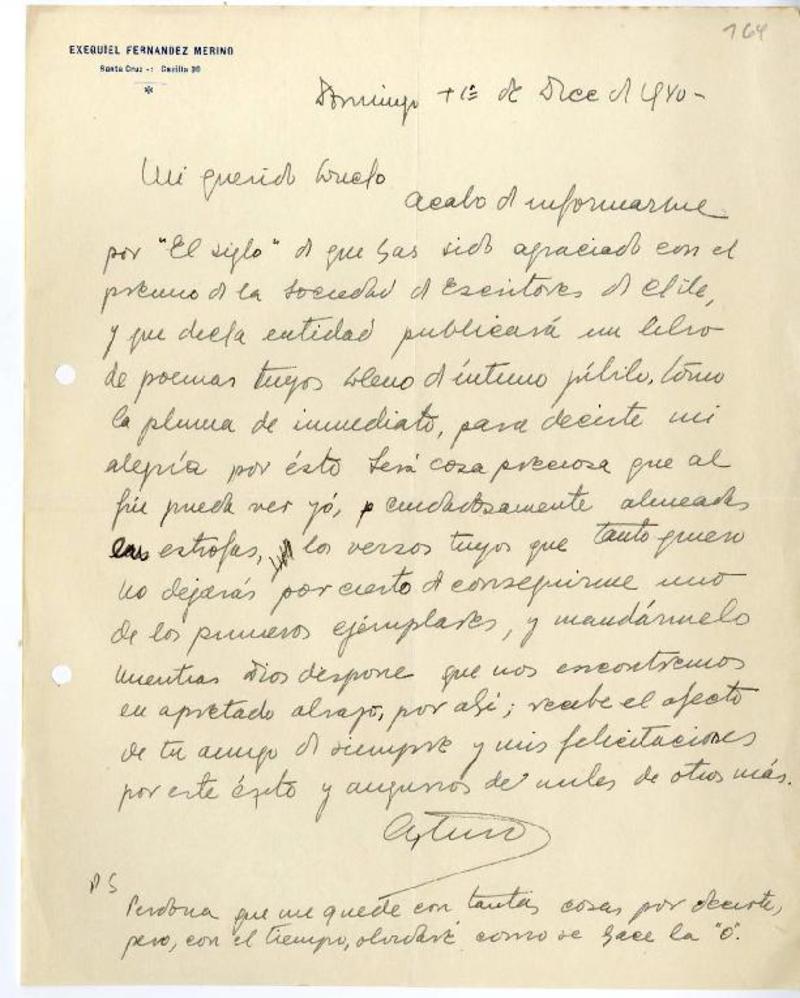 164
EXEQUIEL FERNANDEZ MERINO
Santa Cruz -:- Casilla 30
Domingo 1º de Dice d 1940-
Mi querido
acabo d informarme
por "El siglo" d que has sido agraciado con el
premio d la Sociedad d Escritores d Chile,
y que dicha entidad publicará un libro
de poemas tuyos lleno d íntimo júbilo, tomo
la pluma de inmediato, para decirte mi
alegría por ésto Será cosa preciosa que al
fin pueda ver yó, cuidadosamente alineadas
en estrofas, los versos tuyos que tanto quiero
No dejarás por cierto d conseguirme uno
de los primeros ejemplares, y mandármelo
Mientras Dios dispone que nos encontremos
en apretado abrazo, por ahí; recibe el afecto
de tu amigo d siempre y mis felicitaciones
por este éxito y augurios de miles de otros más.
Arturo
PS
Perdona que me quede con tantas cosas por decirte,
pero, con el tiempo, olvidaré como se hace la "o".